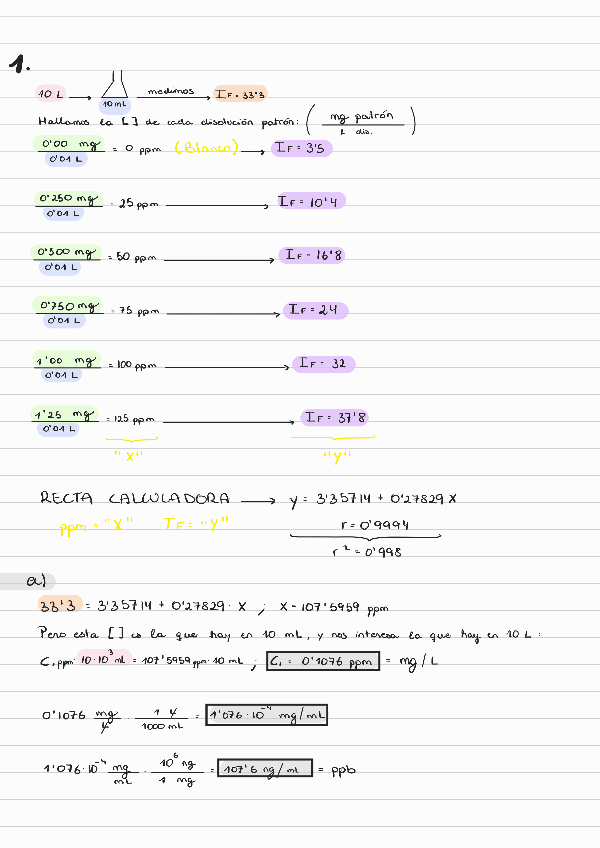 1.
10 L → 10 mL medimos → IF = 33'3
Hallamos la [ ] de cada disolución patrón: ( mg patrón / L dis. )
0'00 mg / 0'01 L = 0 ppm (Blanco) → IF = 3'5
0'250 mg / 0'01 L = 25 ppm → IF = 10'4
0'500 mg / 0'01 L = 50 ppm → IF = 16'8
0'750 mg / 0'01 L = 75 ppm → IF = 24
1'00 mg / 0'01 L = 100 ppm → IF = 32
1'25 mg / 0'01 L = 125 ppm → IF = 37'8
"X" "Y"
RECTA CALCULADORA → y = 3'35714 + 0'27829 X
ppm = "X" IF = "Y" r = 0'9994
r² = 0'998
a)
33'3 = 3'35714 + 0'27829 · X ; X = 107'5959 ppm
Pero esta [ ] es la que hay en 10 mL, y nos interesa la que hay en 10 L :
C₁ ppm · 10·10³ mL = 107'5959 ppm · 10 mL ; C₁ = 0'1076 ppm = mg/L
0'1076 mg / L · 1 L / 1000 mL = 1'076·10⁻⁴ mg/mL
1'076·10⁻⁴ mg / mL · 10⁶ ng / 1 mg = 107'6 ng/mL = ppb